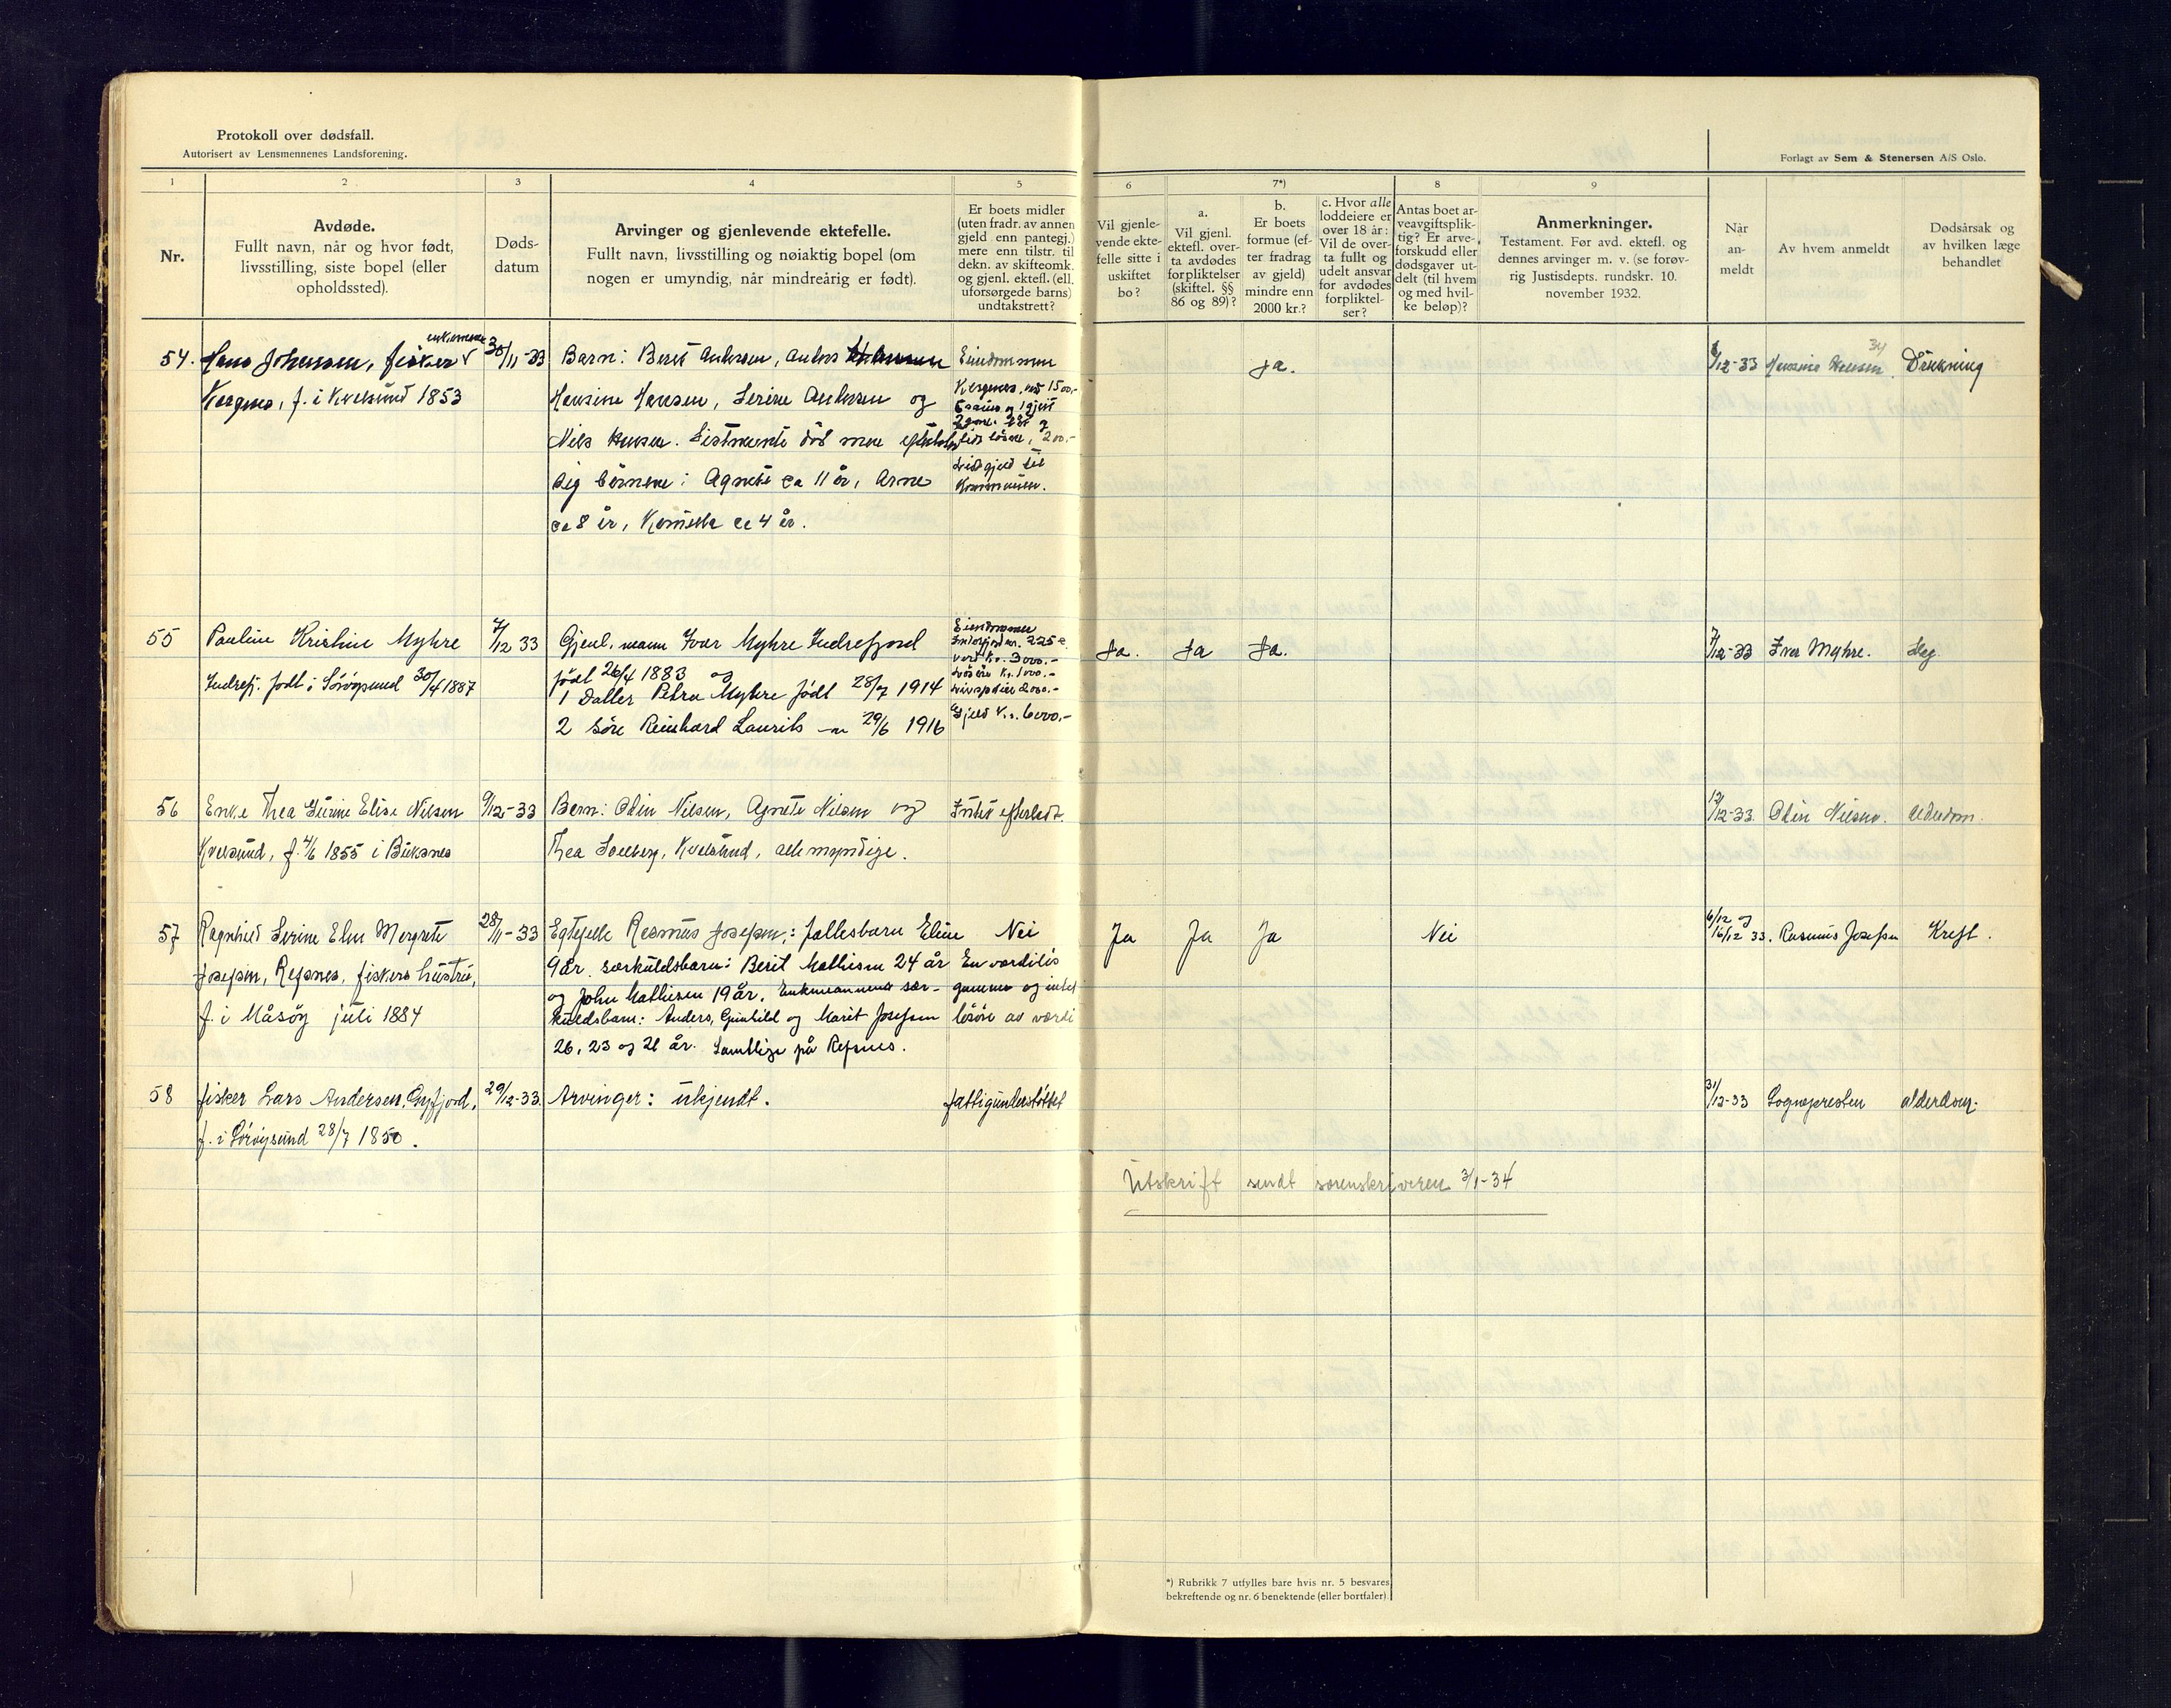 Protokoll over dødsfall.
Autorisert av Lensmennenes Landsforening.
Forlagt av Sem & Stenersen A/S Oslo.
1
2
3
4
5
6
7*)
8
9
Nr.
Avdøde.
Fullt navn, når og hvor født,
livsstilling, siste bopel (eller
opholdssted).
Døds-
datum
Arvinger og gjenlevende ektefelle.
Fullt navn, livsstilling og nøiaktig bopel (om
nogen er umyndig, når mindreårig er født).
Er boets midler
(uten fradr. av annen
gjeld enn pantegj.)
mere enn tilstr. til
dekn. av skifteomk.
og gjenl. ektef. (ell.
uforsørgede barns)
undtakstrett?
Vil gjenle-
vende ekte-
felle sitte i
uskiftet
bo?
a.
Vil gjenl.
ektefl. over-
ta avdødes
forpliktelser
(skiftel. §§
86 og 89)?
b.
Er boets
formue (ef-
ter fradrag
av gjeld)
mindre enn
2000 kr.?
c. Hvor alle
loddeiere er
over 18 år:
Vil de over-
ta fullt og
udelt ansvar
for avdødes
forpliktel-
ser?
Antas boet ar-
veavgiftsplik-
tig? Er arve-
forskudd eller
dødsgaver ut-
delt (til hvem
og med hvil-
ke beløp)?
Anmerkninger.
Testament. Før avd. ektefl. og
dennes arvinger m. v. (se forøv-
rig Justisdepts. rundskr. 10.
november 1932.
Når
an-
meldt
Av hvem anmeldt
Dødsårsak og
av hvilken læge
behandlet
54. Hans Johnsen, fisker
f. i Kvalsund 1853
30/11-33
Barn: Berit Andersen, Anders
Hansine Hansen, Serine Andersen og
Nils Hansen. Sistnevnte død men efterlot
sig børnene: Agnete ca 11 år, Arne
ca 8 år, ca 4 år.
Eiendommen
1500,-
200.-
gjeld til
Kommunen.
Ja.
/12-33 Hansine Hansen. Drukning
34
55 Pauline Kristine Myhre
Indrefj. født i Sørøysund 30/4 1887
7/12 33
Gjenl. mann Ivar Myhre Indrefjord
født 26/4 1883 og
1 Datter Petra Myhre født 28/7 1914
2 Søn Reinhard Laurits 29/6 1916
Eiendommen
verd Kr. 3000.-
Løsøre Kr. 1000.-
2000.-
Gjeld Kr. 6000.-
Ja. Ja Ja.
7/12-33 Ivar Myhre. Slag.
56 Enke Thea Elise Nilsen
Kvalsund, f. 4/6 1855 i Buksnes
9/12-33
Barn: Odin Nilsen, Agnete Nilsen og
Thea Solberg, Kvalsund, alle myndige.
Intet efterladt.
12/12-33. Odin Nilsen. Alderdom.
57 Ragnhild Serine Elen Margrete
Josefsen, Refsnes, fiskers hustru,
f. i Måsøy juli 1884
28/11-33
Egtefelle Rasmus Josefsen,: fellesbarn Eline
9 år. særkuldsbarn: Berit Mathisen 24 år
og John Mathisen 19 år. Enkemannens sær-
kuldsbarn: Anders, Gunhild og Marit Josefsen
26, 23 og 21 år. Samtlige på Refsnes.
Nei
En verdiløs
gamme og intet
løsøre av verdi
Ja Ja Ja Nei
6/12 og
16/12 33. Rasmus Josefsen Kreft.
58 fisker Lars Andersen,
f. i Sørøysund 28/7 1850.
29/12-33.
Arvinger: ukjendt.
fattigunderstøttet
31/12-33 Sognepresten alderdom.
Utskrift sendt sorenskriveren 3/1-34
*) Rubrikk 7 utfylles bare hvis nr. 5 besvares
bekreftende og nr. 6 benektende (eller bortfaler).